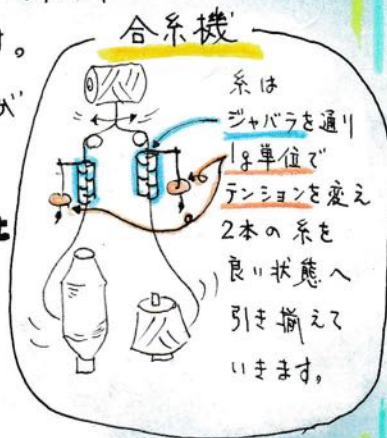 合糸機
糸は
ジャバラを通り
1g単位で
テンションを変え
2本の糸を
良い状態へ
引き揃えて
いきます。
す。
が